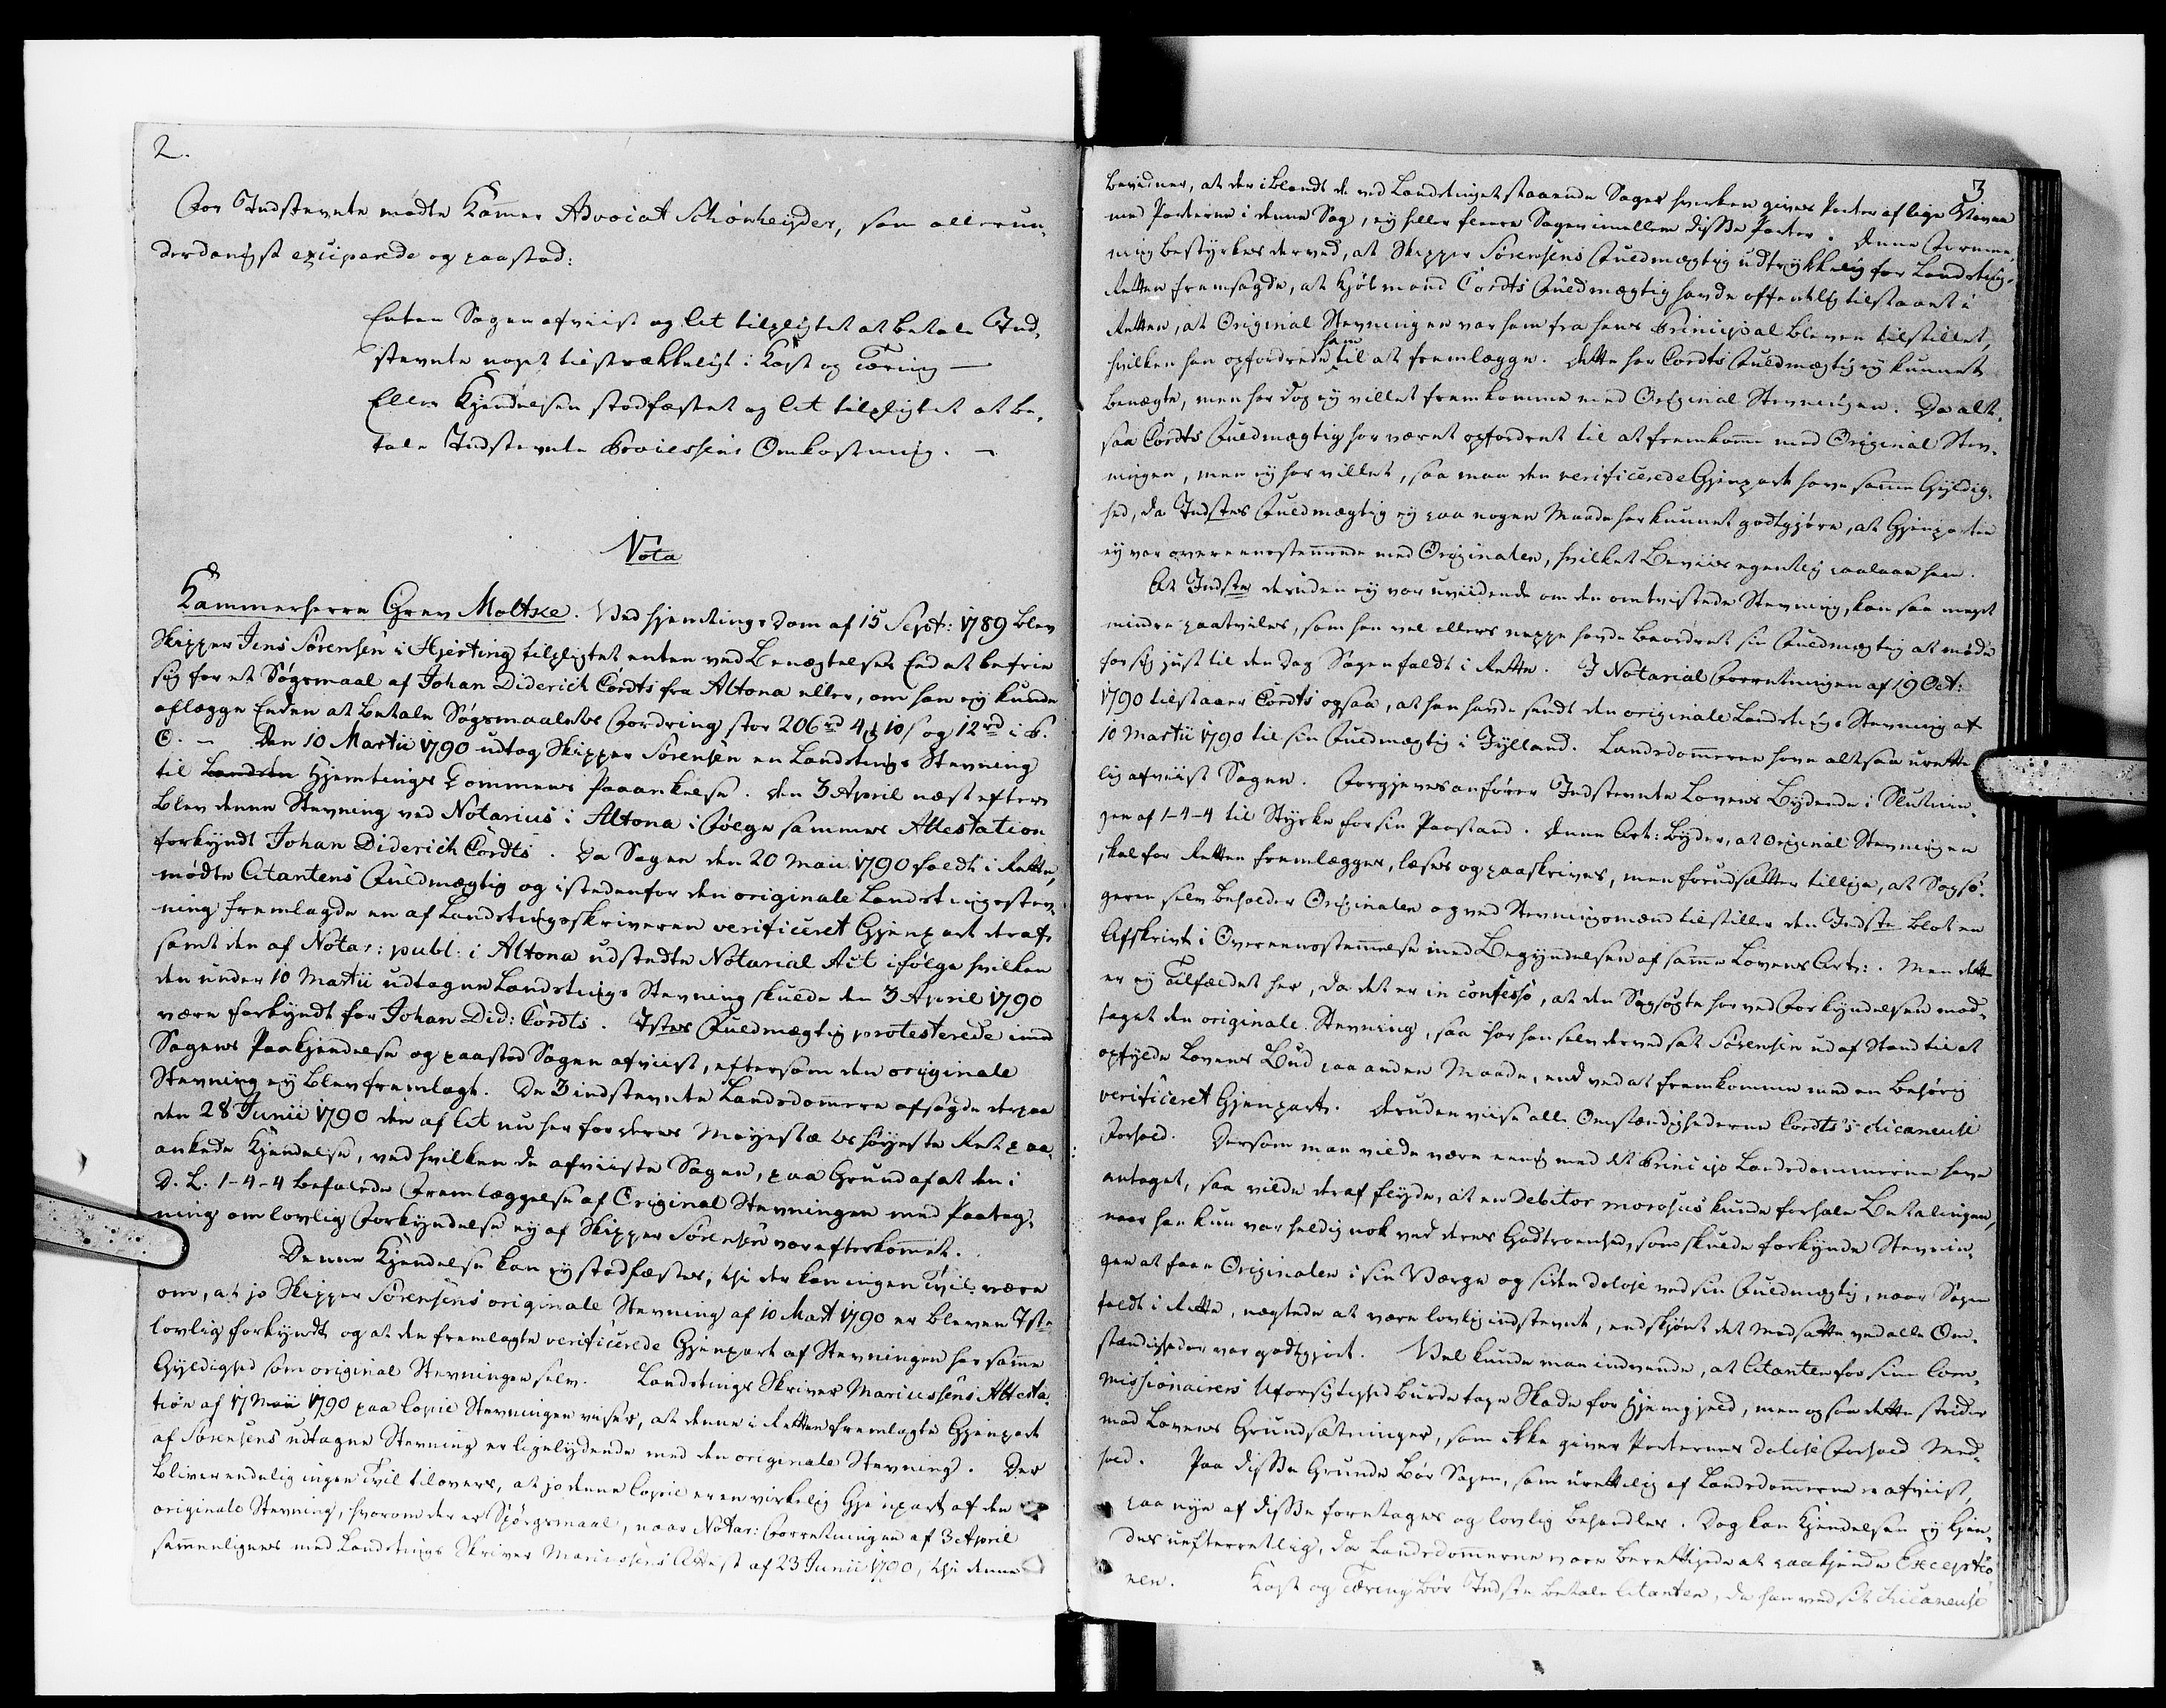 2.
For Indstevnte mødte Kammer Advocat Schønheyder, som allerun-
derdanigst exciperede og paastod:
Enten Sagen afviist og Cit tilpligtet at betale Ind-
stevnte noget tilstrækkeligt i Kost og Tæring —
Eller Kjendelsen stadfæstet og Cit tilpligtet at be-
tale Indstevnte Processens Omkostning. —
Vota
Kammerherre Grev Moltke. Ved Hjemtings Dom af 15 Sept: 1789 blev
Skipper Jens Sørensen i Hjerting tilpligtet enten ved Benægtelses Eed at befrie
sig for et Søgsmaal af Johan Diderich Cordts fra Altona eller, om han ey kunde
aflægge Eeden at betale Søgsmaalets Fordring stor 206 rd 4 ₰ 10 s og 12 rd i P.
O. — Den 10 Martii 1790 udtog Skipper Sørensen en Landstings Stevning
til Landste Hjemtings Dommens Paaankelse. Den 3 April næst efter
blev denne Stevning ved Notarius i Altona i Følge sammes Attestation
forkyndt Johan Diderich Cordts. Da Sagen den 20 Maii 1790 faldt i Rette,
mødte Citantens Fuldmægtig og istedenfor den originale Landstingsstev-
ning fremlagde en af Landstingsskriveren verificeret Gjenpart deraf
samt den af Notar: publ: i Altona udstedte Notarial Act ifølge hvilken
den under 10 Martii udtagne Landstings Stevning skulde den 3 April 1790
være forkyndt for Johan Did: Cordts. Istes Fuldmægtig protesterede imod
Sagens Paakjendelse og paastod Sagen afviist, eftersom den originale
Stevning ey blev fremlagt. De 3 indstevnte Landsdommere afsagde derpaa
den 28 Junii 1790 den af Cit nu her for deres Mayestæts høyeste Ret paa-
ankede Kjendelse, ved hvilken de afviiste Sagen, paa Grund af at den i
D. L. 1-4-4 befalede Fremlæggelse af Original Stevningen med Paateg-
ning om lovlig Forkyndelse ey af Skipper Sørensen var efterkommet.
Denne Kjendelse kan ey stadfæstes, thi der kan ingen Tvil være
om, at jo Skipper Sørensens originale Stevning af 10 Mart 1790 er bleven Iste
lovlig forkyndt og at den fremlagte verificerede Gjenpart af Stevningen har samme
Gyldighed som original Stevningen selv. Landstings Skriver Mariussens Attesta-
tion af 17 Maii 1790 paa Copie Stevningen viser, at denne i Retten fremlagte Gjenpart
af Sørensens udtagne Stevning er ligelydende med den originale Stevning. Der
bliver endelig ingen Tvil tilovers, at jo denne Copie er en virkelig Gjenpart af den
originale Stevning, hvorom der er Spørgsmaal, naar Notar: Forretningen af 3 April
sammenlignes med Landstings Skriver Mariussens Attest af 23 Junii 1790, thi denne
3
bevidner, at der iblandt de ved Landstinget staaende Sager hverken gives Parter af lige Navne
med Parterne i denne Sag, ey heller fleere Sager imellem disse Parter. Denne Formee-
ning bestyrkes derved, at Skipper Sørensens Fuldmægtig udtrykkelig for Landsting-
Retten fremsagde, at Kjøbmand Cordts Fuldmægtig havde offentlig tilstaaet i
Retten, at Original Stevningen var ham fra hans Principal bleven tilstillet,
hvilken han opfordrede ham til at fremlægge. Dette har Cordts Fuldmægtig ey kunnet
benægte, men har dog ey villet fremkomme med Original Stevningen. Da alt-
saa Cordts Fuldmægtig har været opfordret til at fremkomme med Original Stev-
ningen, men ey har villet, saa maa den verificerede Gjenpart have samme Gyldig-
hed, da Indstes Fuldmægtig ey paa nogen Maade har kunnet godtgjøre, at Gjenparten
ey var overeensstemmende med Originalen, hvilket Beviis egentlig paalaae ham.
At Indste desuden ey var uvidende om den omtvistede Stevning, kan saa meget
mindre paatviles, som han vel ellers neppe havde beordret sin Fuldmægtig at møde
for sig just til den Dag Sagen faldt i Rette. I Notarial Forretningen af 19 Oct:
1790 tilstaaer Cordts ogsaa, at han havde sendt den originale Landstings Stevning af
10 Martii 1790 til sin Fuldmægtig i Jylland. Landsdommerne have altsaa urette-
lig afviist Sagen. Forgjeves anfører Indstevnte Lovens Bydende i Slutnin-
gen af 1-4-4 til Styrke for sin Paastand. Denne Art: byder, at Original Stevningen
skal for Retten fremlægges, læses og paaskrives, men forudsætter tillige, at Sagsø-
geren selv beholder Originalen og ved Stevningsmænd tilstiller den Indste blot en
Afskrivt i Overeensstemmelse med Begyndelsen af samme Lovens Art:. Men dette
er ey Tilfældet her, da det er in confesso, at den Sagsøgte har ved Forkyndelsen mod-
taget den originale Stevning, saa har han selv derved sat Sørensen ud af Stand til at
opfylde Lovens Bud paa anden Maade, end ved at fremkomme med en behørig
verificeret Gjenpart. Desuden viise alle Omstændighederne Cordts's chicaneuse
Forhold. Dersom man vilde være eenig med det Princip Landsdommerne have
antaget, saa vilde deraf flyde, at en Debitor morosus kunde forhale Betalingen,
naar han kun var heldig nok ved deres Godtroenhed, som skulde forkynde Stevnin-
gen at faae Originalen i sin Værge og siden dolose ved sin Fuldmægtig, naar Sagen
faldt i Rette, nægtede at være lovlig indstevnt, endskjønt det Modsatte ved alle Om-
stændigheder var godtgjort. Vel kunde man indvende, at Citanten for sin Com-
missionairens Uforsigtighed burde tage Skade for Hjemgjeld, men ogsaa dette strider
mod Lovens Grundsætninger, som ikke giver Parternes dolose Forhold Med-
hold. Paa disse Grunde bør Sagen, som urettelig af Landsdommerne er afviist,
paa nye af disse foretages og lovlig behandles. Dog kan Kjendelsen ey kjen-
des uefterretlig, da Landsdommerne vare berettigede at paakjende Exceptio-
nen. Kost og Tæring bør Indste betale Citanten, da han ved sit chicaneuse